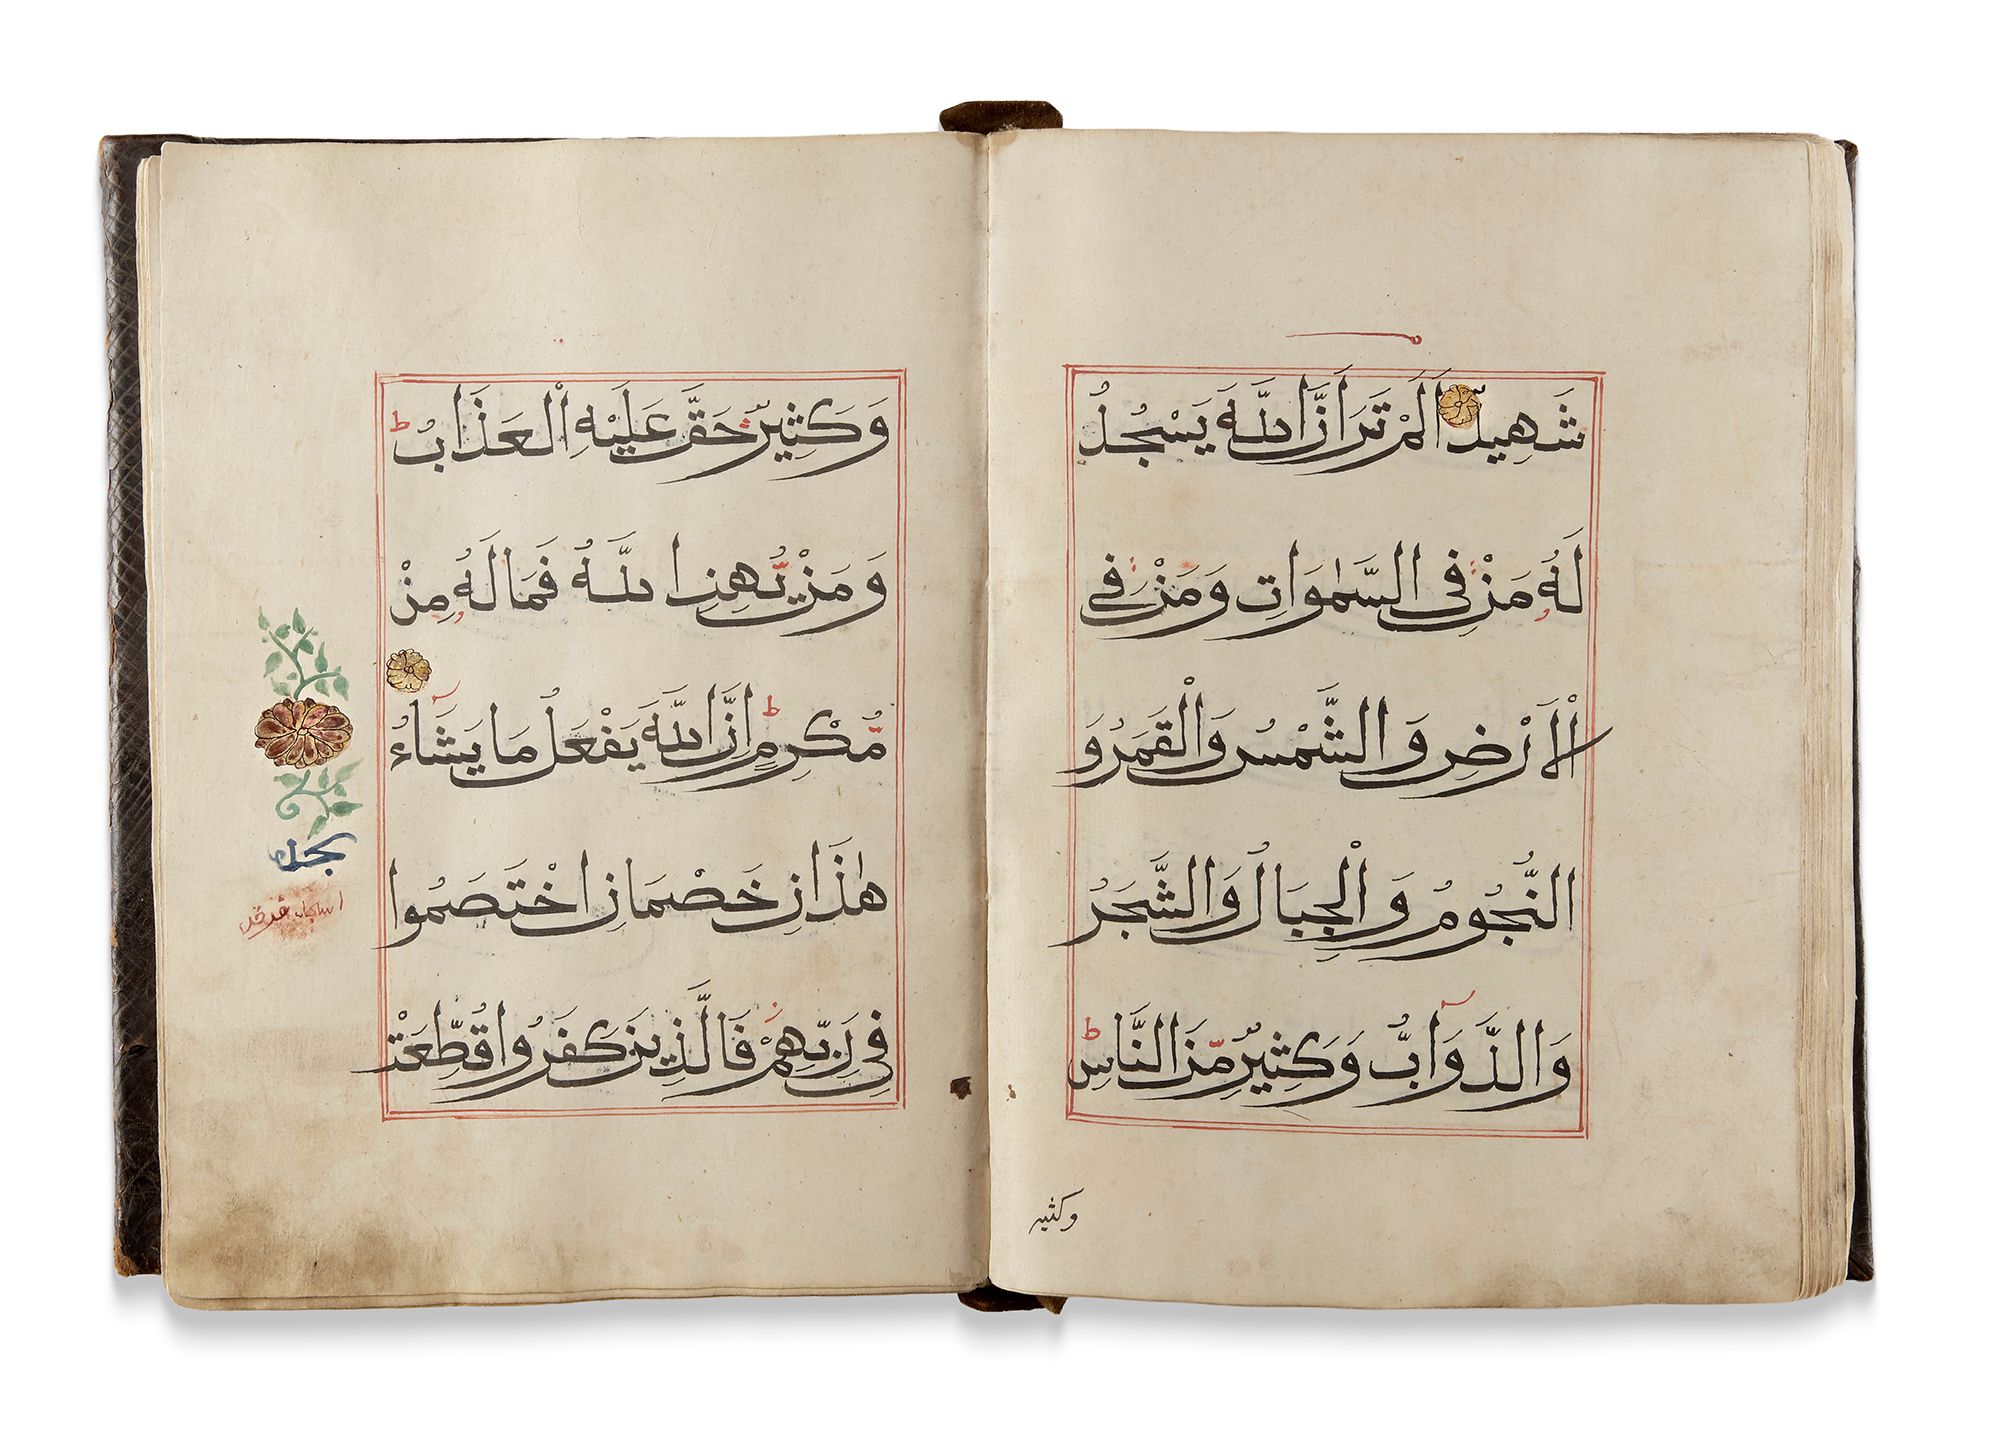 شَهِيدٌ اَلَمْ تَرَ اَنَّ اللّٰهَ يَسْجُدُ
لَهُ مَنْ فِي السَّمٰوَاتِ وَمَنْ فِي
الْاَرْضِ وَالشَّمْسُ وَالْقَمَرُ وَ
النُّجُومُ وَالْجِبَالُ وَالشَّجَرُ
وَالدَّوَآبُّ وَكَثِيرٌ مِّنَ النَّاسِ ط
وكثير
وَكَثِيرٌ حَقَّ عَلَيْهِ الْعَذَابُ ط
وَمَنْ يُّهِنِ اللّٰهُ فَمَا لَهُ مِنْ
مُّكْرِمٍ ط اِنَّ اللّٰهَ يَفْعَلُ مَا يَشَآءُ
هٰذَانِ خَصْمَانِ اخْتَصَمُوا
فِي رَبِّهِمْ ز فَالَّذِينَ كَفَرُوا قُطِّعَتْ